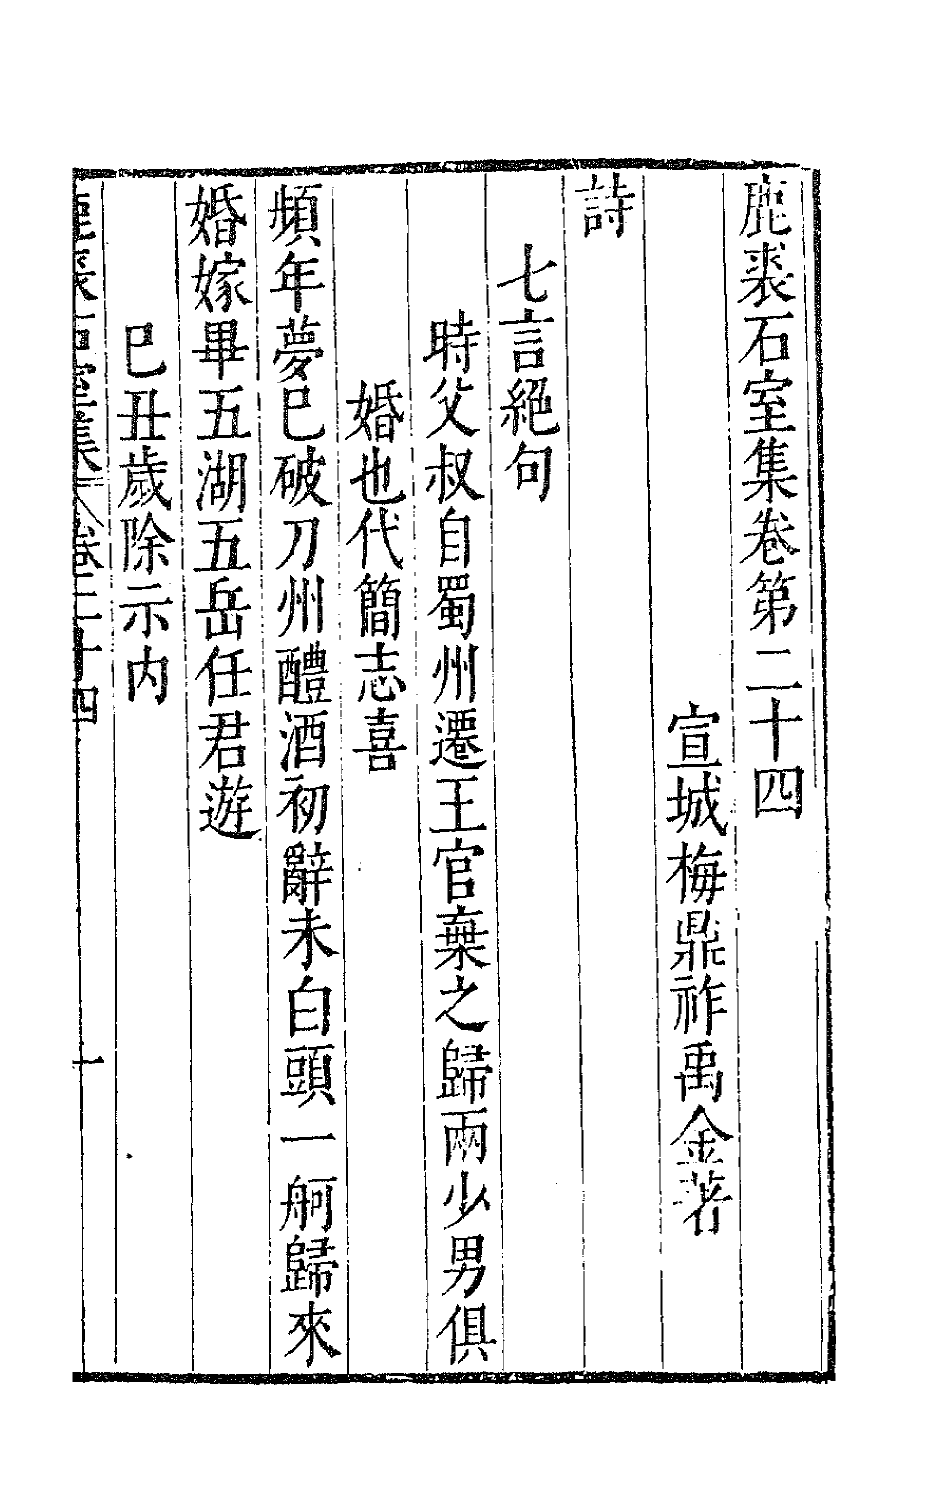 鹿裘石室集卷第二十四
宣城梅鼎祚禹金著
詩
七言絕句
時父叔自蜀州遷王官棄之歸兩少男俱
婚也代簡志喜
頻年夢已破刀州醴酒初辭未白頭一舸歸來
婚嫁畢五湖五岳任君遊
巳丑歲除示内
鹿裘石室集 卷二十四 一